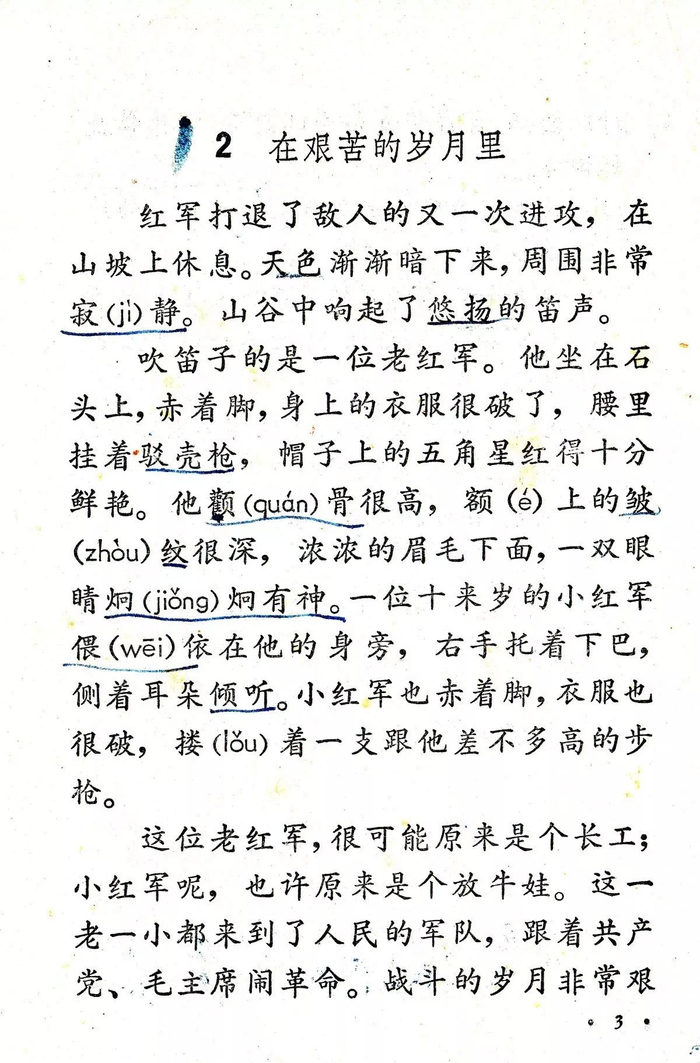 2 在艰苦的岁月里
红军打退了敌人的又一次进攻，在
山坡上休息。天色渐渐暗下来，周围非常
寂(jì)静。山谷中响起了悠扬的笛声。
吹笛子的是一位老红军。他坐在石
头上，赤着脚，身上的衣服很破了，腰里
挂着驳壳枪，帽子上的五角星红得十分
鲜艳。他颧(quán)骨很高，额(é)上的皱
(zhòu)纹很深，浓浓的眉毛下面，一双眼
睛炯(jiǒng)炯有神。一位十来岁的小红军
偎(wēi)依在他的身旁，右手托着下巴，
侧着耳朵倾听。小红军也赤着脚，衣服也
很破，搂(lǒu)着一支跟他差不多高的步
枪。
这位老红军，很可能原来是个长工；
小红军呢，也许原来是个放牛娃。这一
老一小都来到了人民的军队，跟着共产
党、毛主席闹革命。战斗的岁月非常艰
· 3 ·